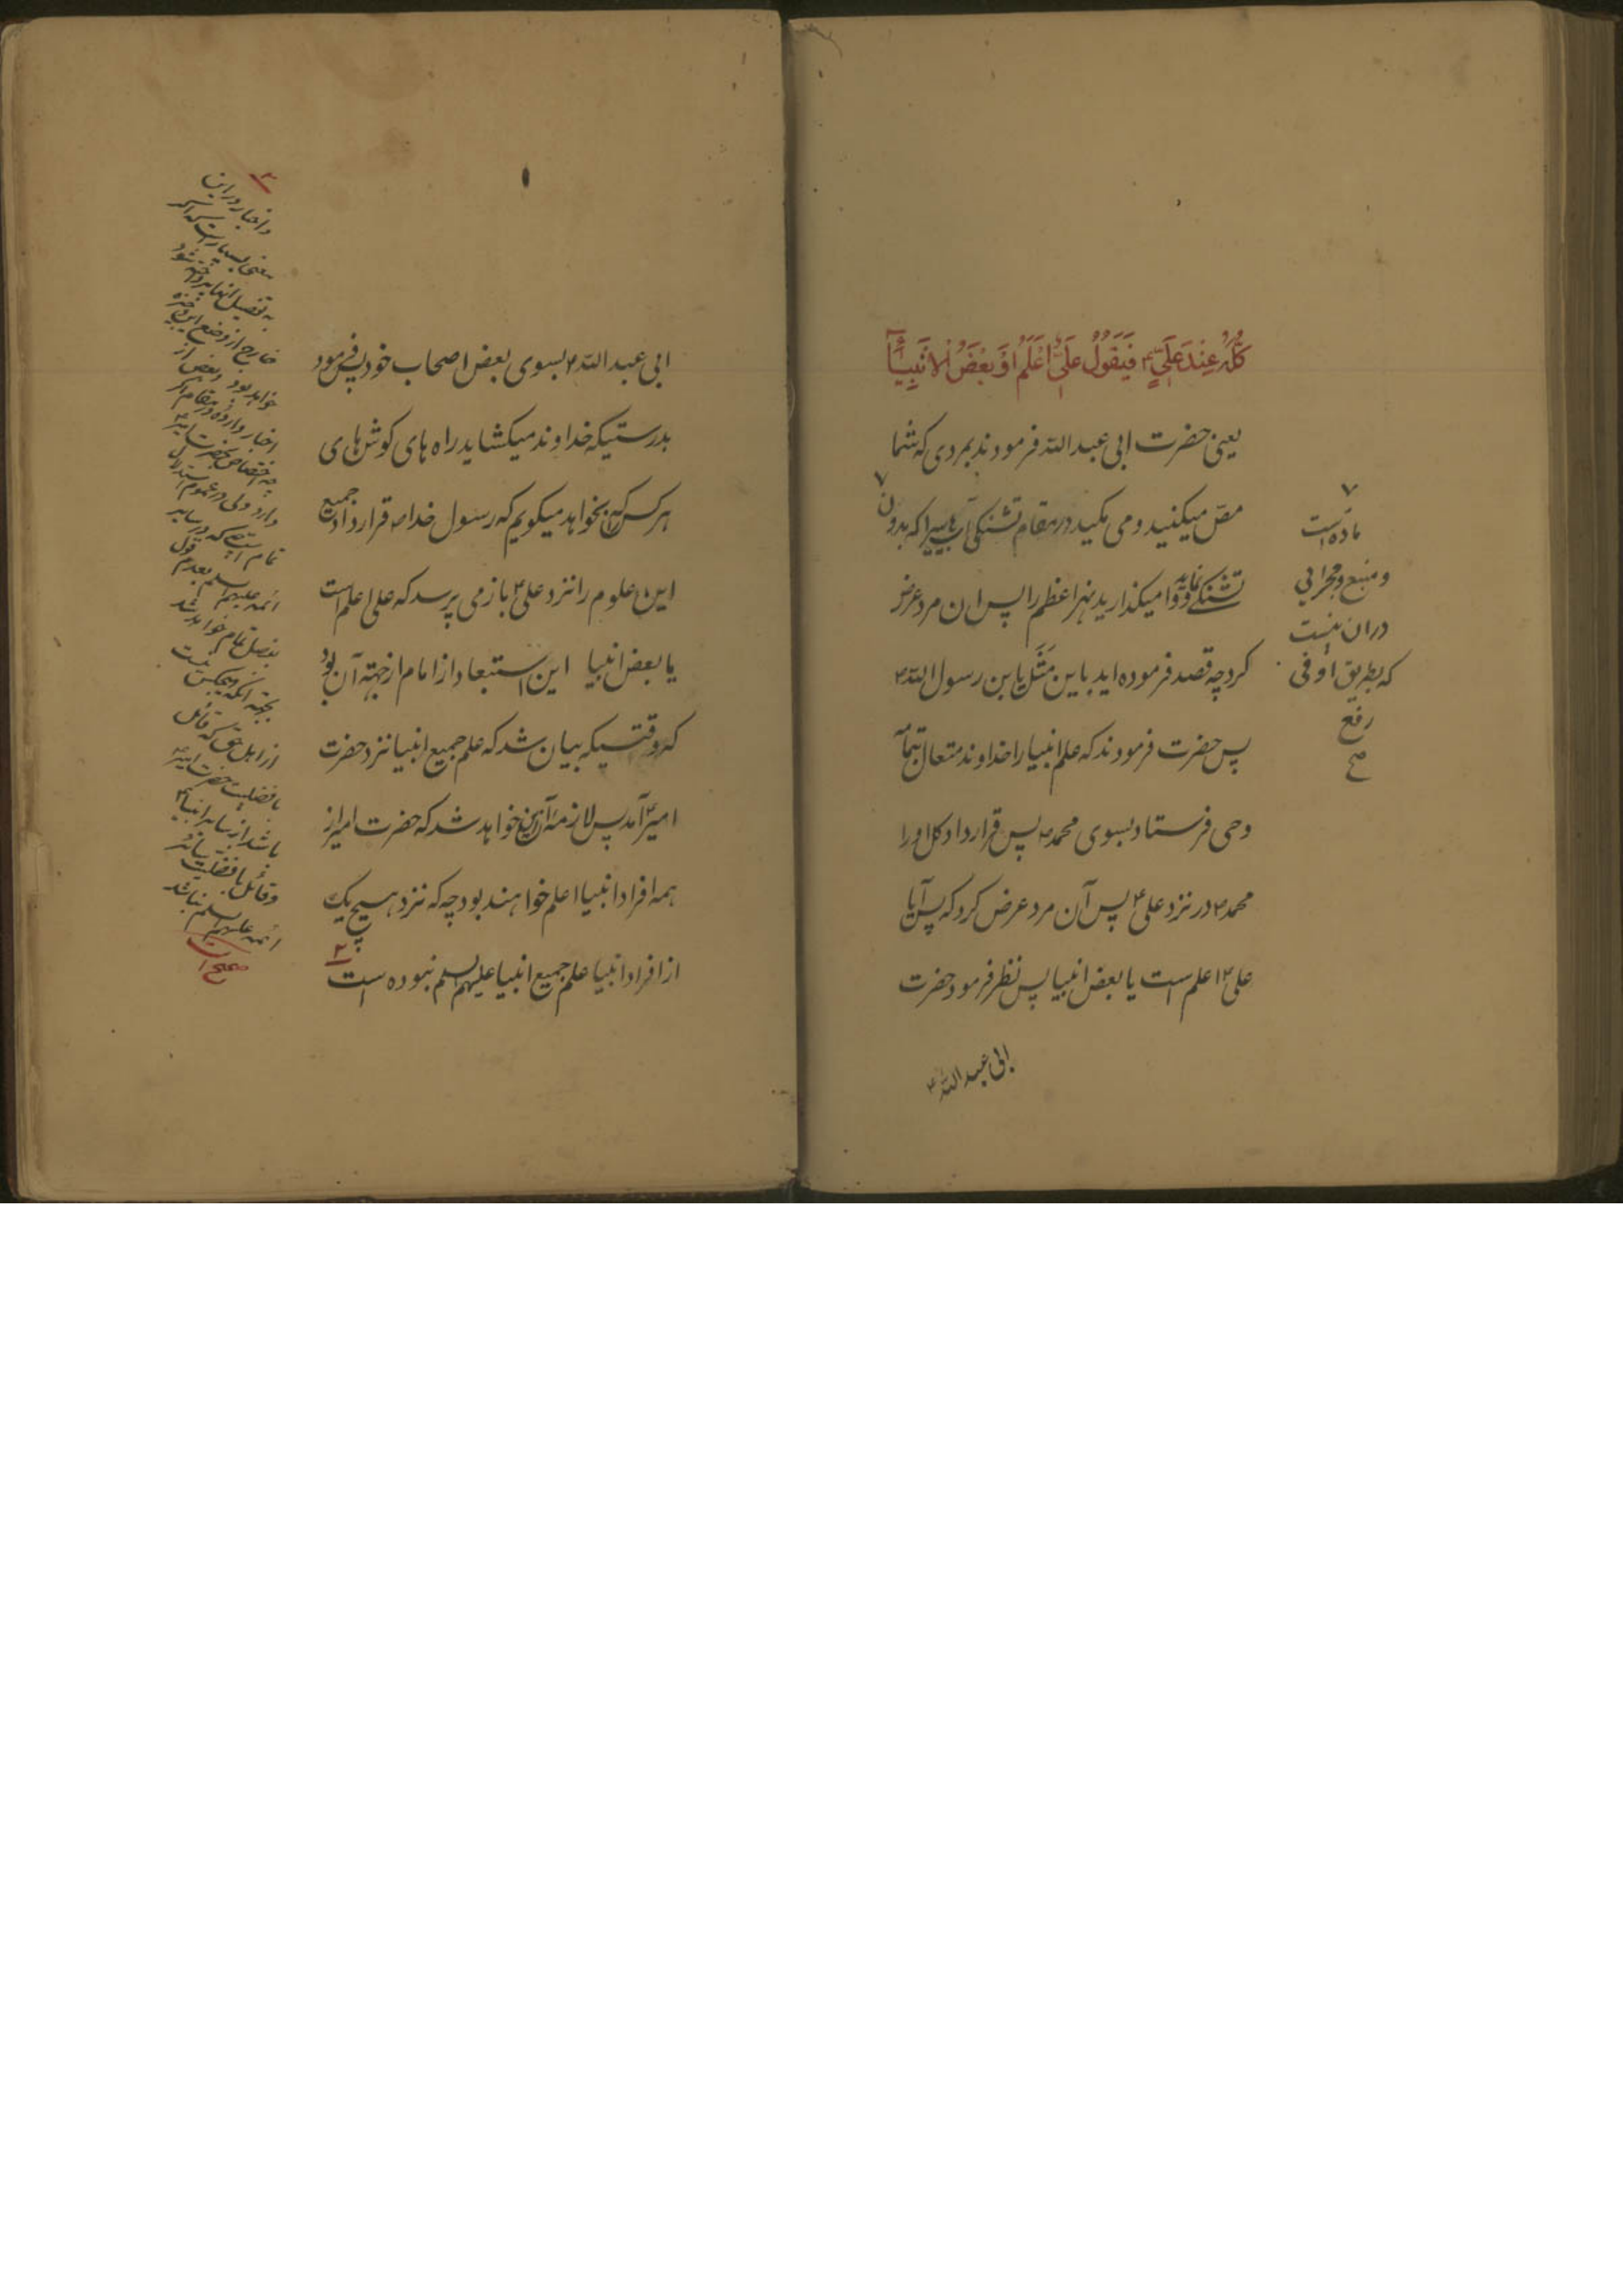 كُلُّهُ عِنْدَ عَلِيٍّ ۴ فَيَقُولُ عَلِيٌّ اَعْلَمُ اَوْ بَعْضُ الْاَنْبِيَآءِ
یعنی حضرت ابی عبد الله فرمودند بمردی که شما
مصّ میکنید و می مکید در مقام تشنکی آب را که بدون
تشنکی نماید و وا میکذارید نهر اعظم را پس ان مرد عرض
کرد چه قصد فرموده اید باین مَثَل یا بن رسول الله ۴
پس حضرت فرمودند که علم انبیا را خداوند متعال بتمامه
وحی فرستاد بسوی محمد ص پس قرار داد کل او را
محمد ص در نزد علی ۴ پس آن مرد عرض کرد که پس آیا
علی ۴ اعلم است یا بعض انبیا پس نظر فرمود حضرت
ابی عبد الله ۴
۷
ماده است
و منبع و مجرایی
در ان نیست
که بطریق اوفی
رفع
صح
ابی عبد الله ۴ بسوی بعض اصحاب خود پس فرمود
بدرستیکه خداوند میکشاید راه های کوش های
هر کس که بخواهد میکویم که رسول خدا ص قرار داد جمیع
این علوم را نزد علی ۴ باز می پرسد که علی اعلم است
یا بعض انبیا این استبعاد از امام از جهته آن بود
که وقتیکه بیان شد که علم جمیع انبیا نزد حضرت
امیر ۴ آمد پس لازمهٔ این خواهد شد که حضرت امیر از
همه افراد انبیا اعلم خواهند بود چه که نزد هیچ یک
از افراد انبیا علم جمیع انبیا علیهم السلم نبوده است
۲
و اخبار در این
معنی بسیار است که اکر
به تفصیل انها پرداخته شود
خارج از وضع این وجیزه
خواهد بود و بعض از
اخبار وارده در مقام اکر
چه اختصاص بحضرت امیر ۴
دارد ولی در عموم استدلال
تمام است که در سایر
ائمه علیهم السلم بعدم قول
بفصل تمام خواهد شد
بجهته انکه هیچکس نیست
از اهل حق که قائل
بافضلیت حضرت امیر ۴
باشد از سایر انبیا ۴
و قائل بافضلیت سایر
ائمه علیهم السلم نباشد
صح